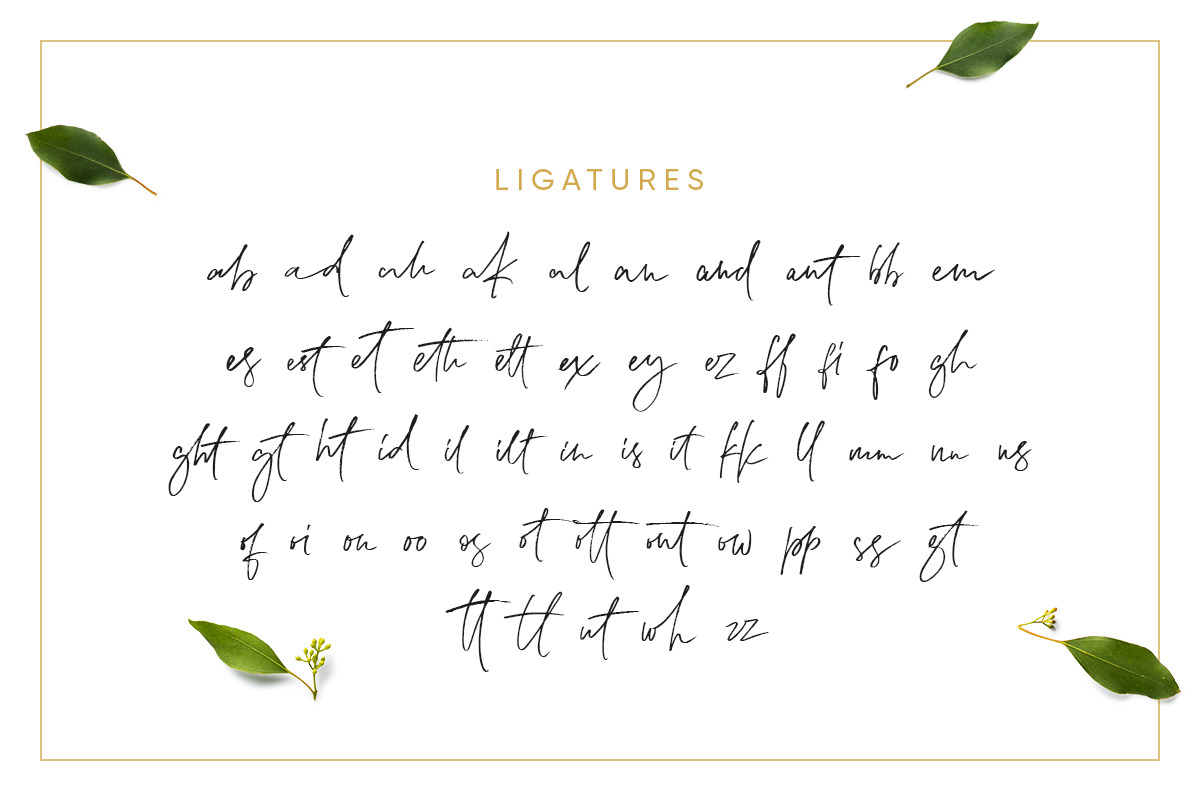 LIGATURES
ab ad ah ak al an and ant bb em
es est et eth ett ex ey ez ff fi fo gh
ght gt ht id il ilt in is it kk ll mm nn ns
of oi on oo os ot ott out ow pp ss st
tt tl ut wh zz